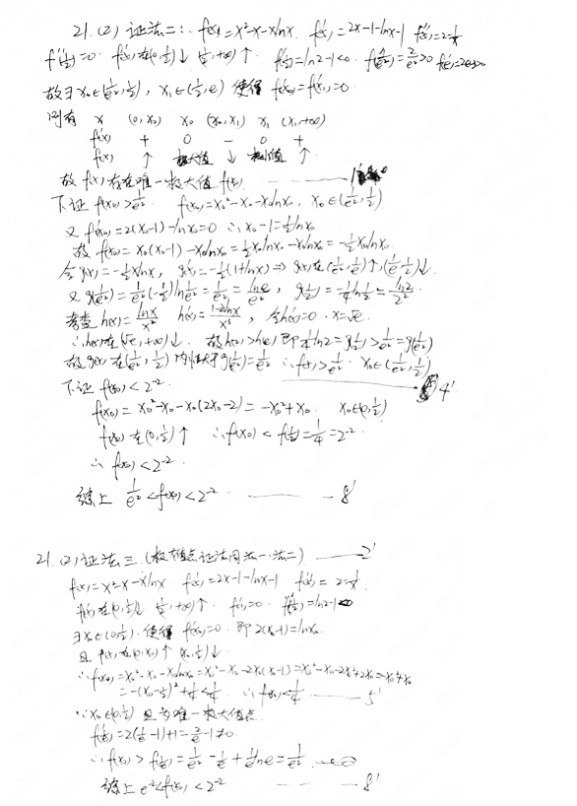 21.(2) 证法二: f(x)=x²-x-xlnx. f'(x)=2x-1-lnx-1 f''(x)=2-1/x
f''(1/2)=0. f'(x)在(0,1/2)↓ (1/2,+∞)↑ f'(1/2)=ln2-1<0. f'(1/e²)=2/e²>0
故∃x₀∈(1/e²,1/2), x₁∈(1/2,e) 使得 f'(x₀)=f'(x₁)=0
则有 x (0,x₀) x₀ (x₀,x₁) x₁ (x₁,+∞)
f'(x) + 0 - 0 +
f(x) ↑ 极大值 ↓ 极小值 ↑
故 f(x)存在唯一极大值f(x₀)
下证 f(x₀)>1/e². f(x₀)=x₀²-x₀-x₀lnx₀, x₀∈(1/e²,1/2)
又 f'(x₀)=2(x₀-1)-lnx₀=0 ∴x₀-1=1/2lnx₀
故 f(x₀)=x₀(x₀-1)-x₀lnx₀=1/2x₀lnx₀-x₀lnx₀=-1/2x₀lnx₀
令g(x)=-1/2xlnx, g'(x)=-1/2(1+lnx)⇒g(x)在(1/e²,1/e)↑,(1/e,1/2)↓
又 g(1/e²)=1/e²·(-1/2)ln1/e²=1/e²=lne/e², g(1/2)=-1/4ln1/2=ln2/2²
考查h(x)=lnx/x² h'(x)=(1-2lnx)/x³, 令h'(x)=0 x=√e
∴h(x)在(√e,+∞)↓. 故h(2)>h(e),即1/4ln2=g(1/2)>1/e²=g(1/e²)
故g(x)在(1/e²,1/2)内恒大于g(1/e²)=1/e² ∴f(x₀)>1/e² x₀∈(1/e²,1/2)
4'
下证 f(x₀)<2⁻²
f(x₀)=x₀²-x₀-x₀(2x₀-2)=-x₀²+x₀ x₀∈(0,1/2)
f(x₀)在(0,1/2)↑ ∴f(x₀)<f(1/2)=1/4=2⁻²
∴ f(x₀)<2⁻²
综上 1/e²<f(x₀)<2⁻² 8'
21.(2)证法三.(极值点证法同法一、法二) 2'
f(x)=x²-x-xlnx f'(x)=2x-1-lnx-1 f''(x)=2-1/x
f'(x)在(0,1/2)↓ (1/2,+∞)↑. f'(1)=0. f'(1/2)=ln2-1<0
∃x₀∈(0,1/2).使得 f'(x₀)=0.即2(x₀-1)=lnx₀
且 f(x)在(0,x₀)↑ (x₀,1/2)↓
∴f(x₀)=x₀²-x₀-x₀lnx₀=x₀²-x₀-2x₀(x₀-1)=x₀²-x₀-2x₀²+2x₀=-x₀²+x₀
=-(x₀-1/2)²+1/4<1/4 ∴f(x₀)<1/4 5'
∵x₀∈(0,1/2) 且为唯一极大值点
f'(1/e)=2(1/e-1)+1=2/e-1≠0
∴f(x₀)>f(1/e)=1/e²-1/e+1/elne=1/e²
综上 e⁻²<f(x₀)<2⁻² 8'